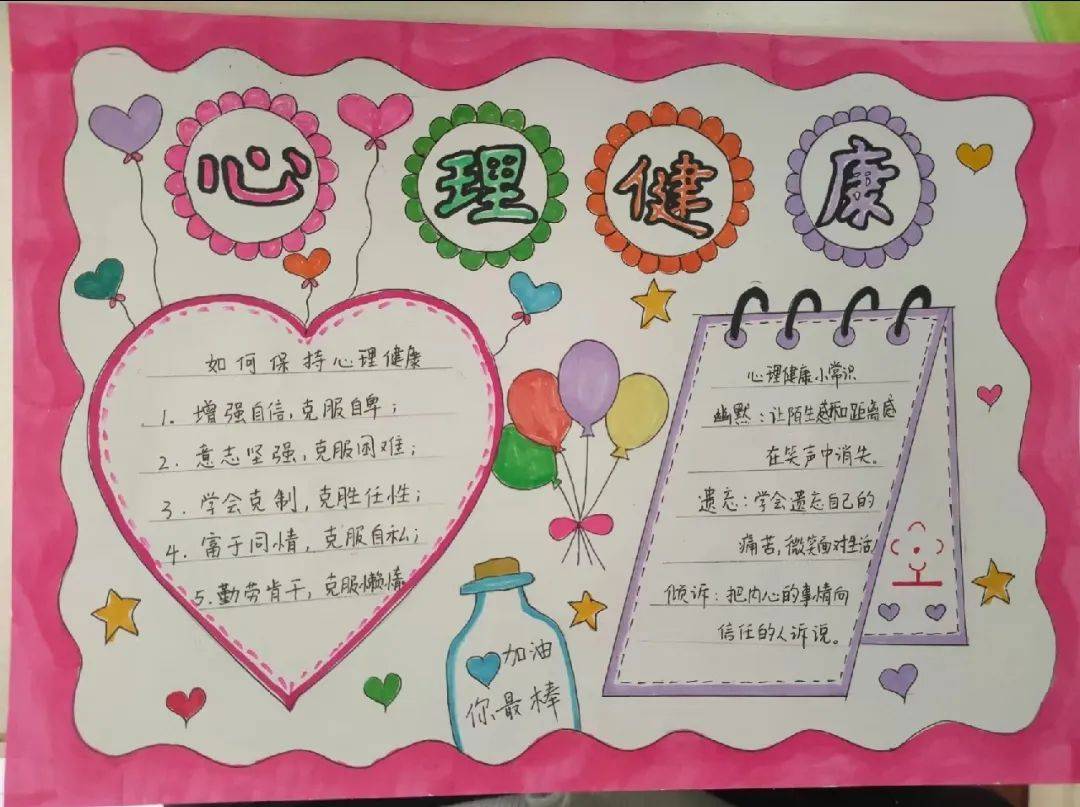 心理健康
如何保持心理健康
1. 增强自信,克服自卑;
2. 意志坚强,克服困难;
3. 学会克制,克胜任性;
4. 富于同情,克服自私;
5. 勤劳肯干,克服懒惰
心理健康小常识
幽默:让陌生感和距离感
在笑声中消失。
遗忘:学会遗忘自己的
痛苦,微笑面对生活
倾诉:把内心的事情向
信任的人诉说。
加油
你最棒